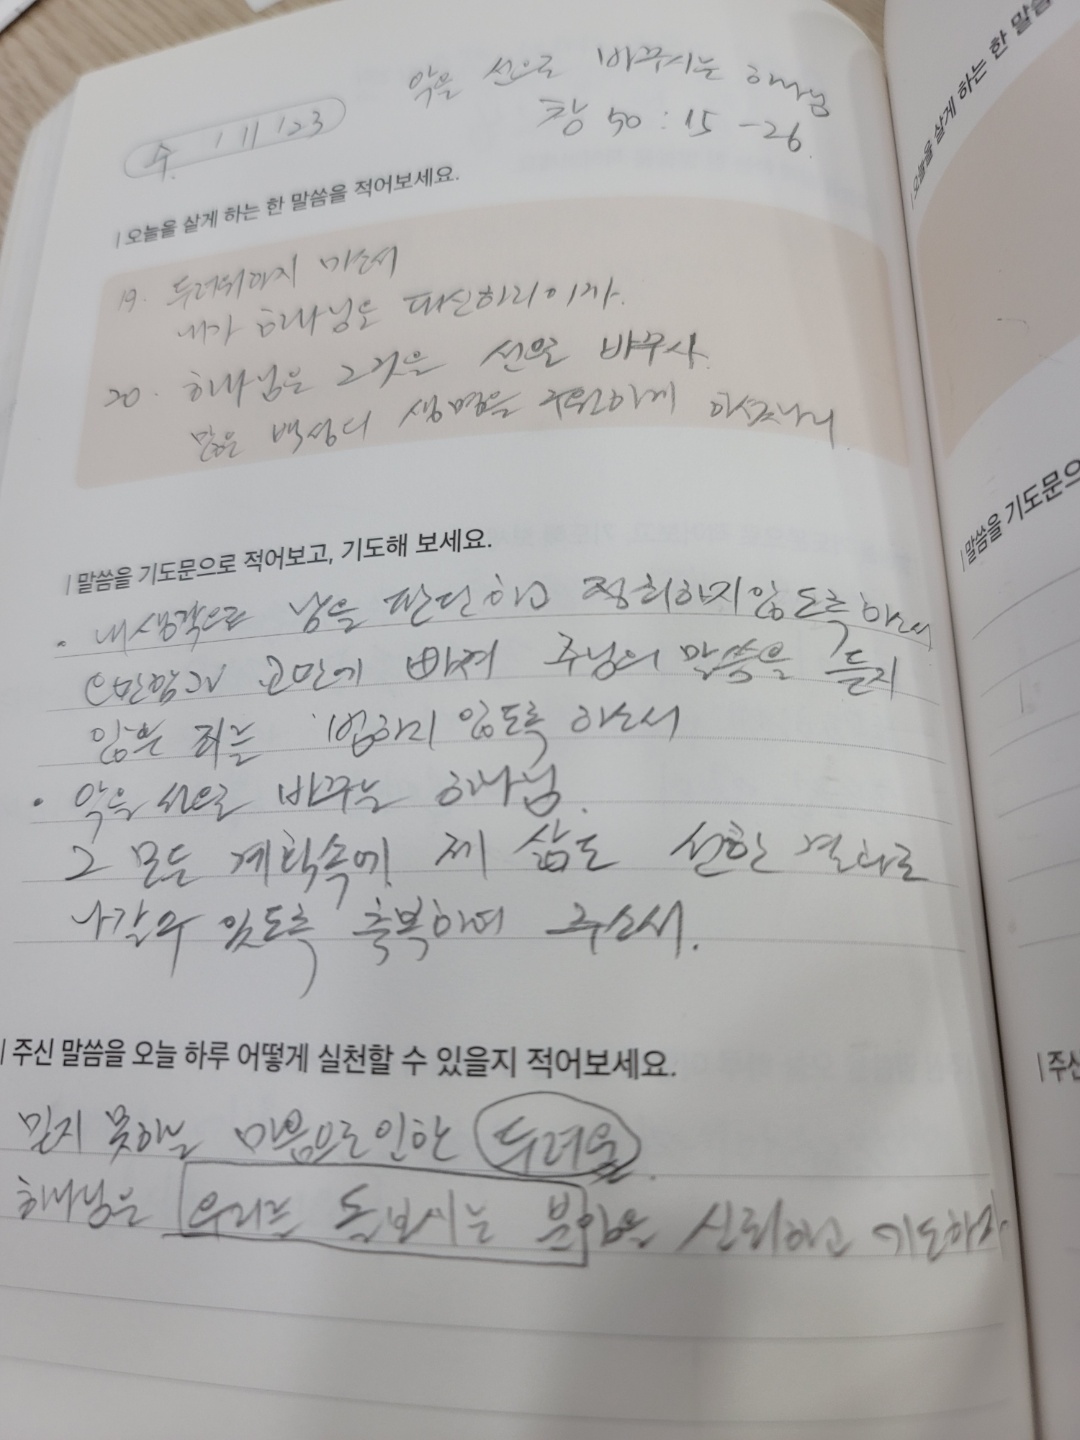 악을 선으로 바꾸시는 하나님
수. '11 '23
창 50 : 15 - 26.
| 오늘을 살게 하는 한 말씀을 적어보세요.
19. 두려워하지 마소서
내가 하나님을 대신하리이까.
20. 하나님은 그것을 선으로 바꾸사.
많은 백성의 생명을 구원하게 하셨나니
| 말씀을 기도문으로 적어보고, 기도해 보세요.
• 내 생각으로 남을 판단하고 정죄하지 않도록 하소서
고민에 빠져 주님의 말씀을 듣지
않은 죄는 범하지 않도록 하소서
• 악을 선으로 바꾸는 하나님.
그 모든 계획속에 제 삶도 선한 결과로
나갈수 있도록 축복하여 주소서.
| 주신 말씀을 오늘 하루 어떻게 실천할 수 있을지 적어보세요.
믿지 못하는 마음으로 인한 두려움.
하나님은 우리는 돌보시는 분임을 신뢰하고 기도하자.
오늘을 살게 하는 한 말씀
| 말씀을 기도문으
| 주신